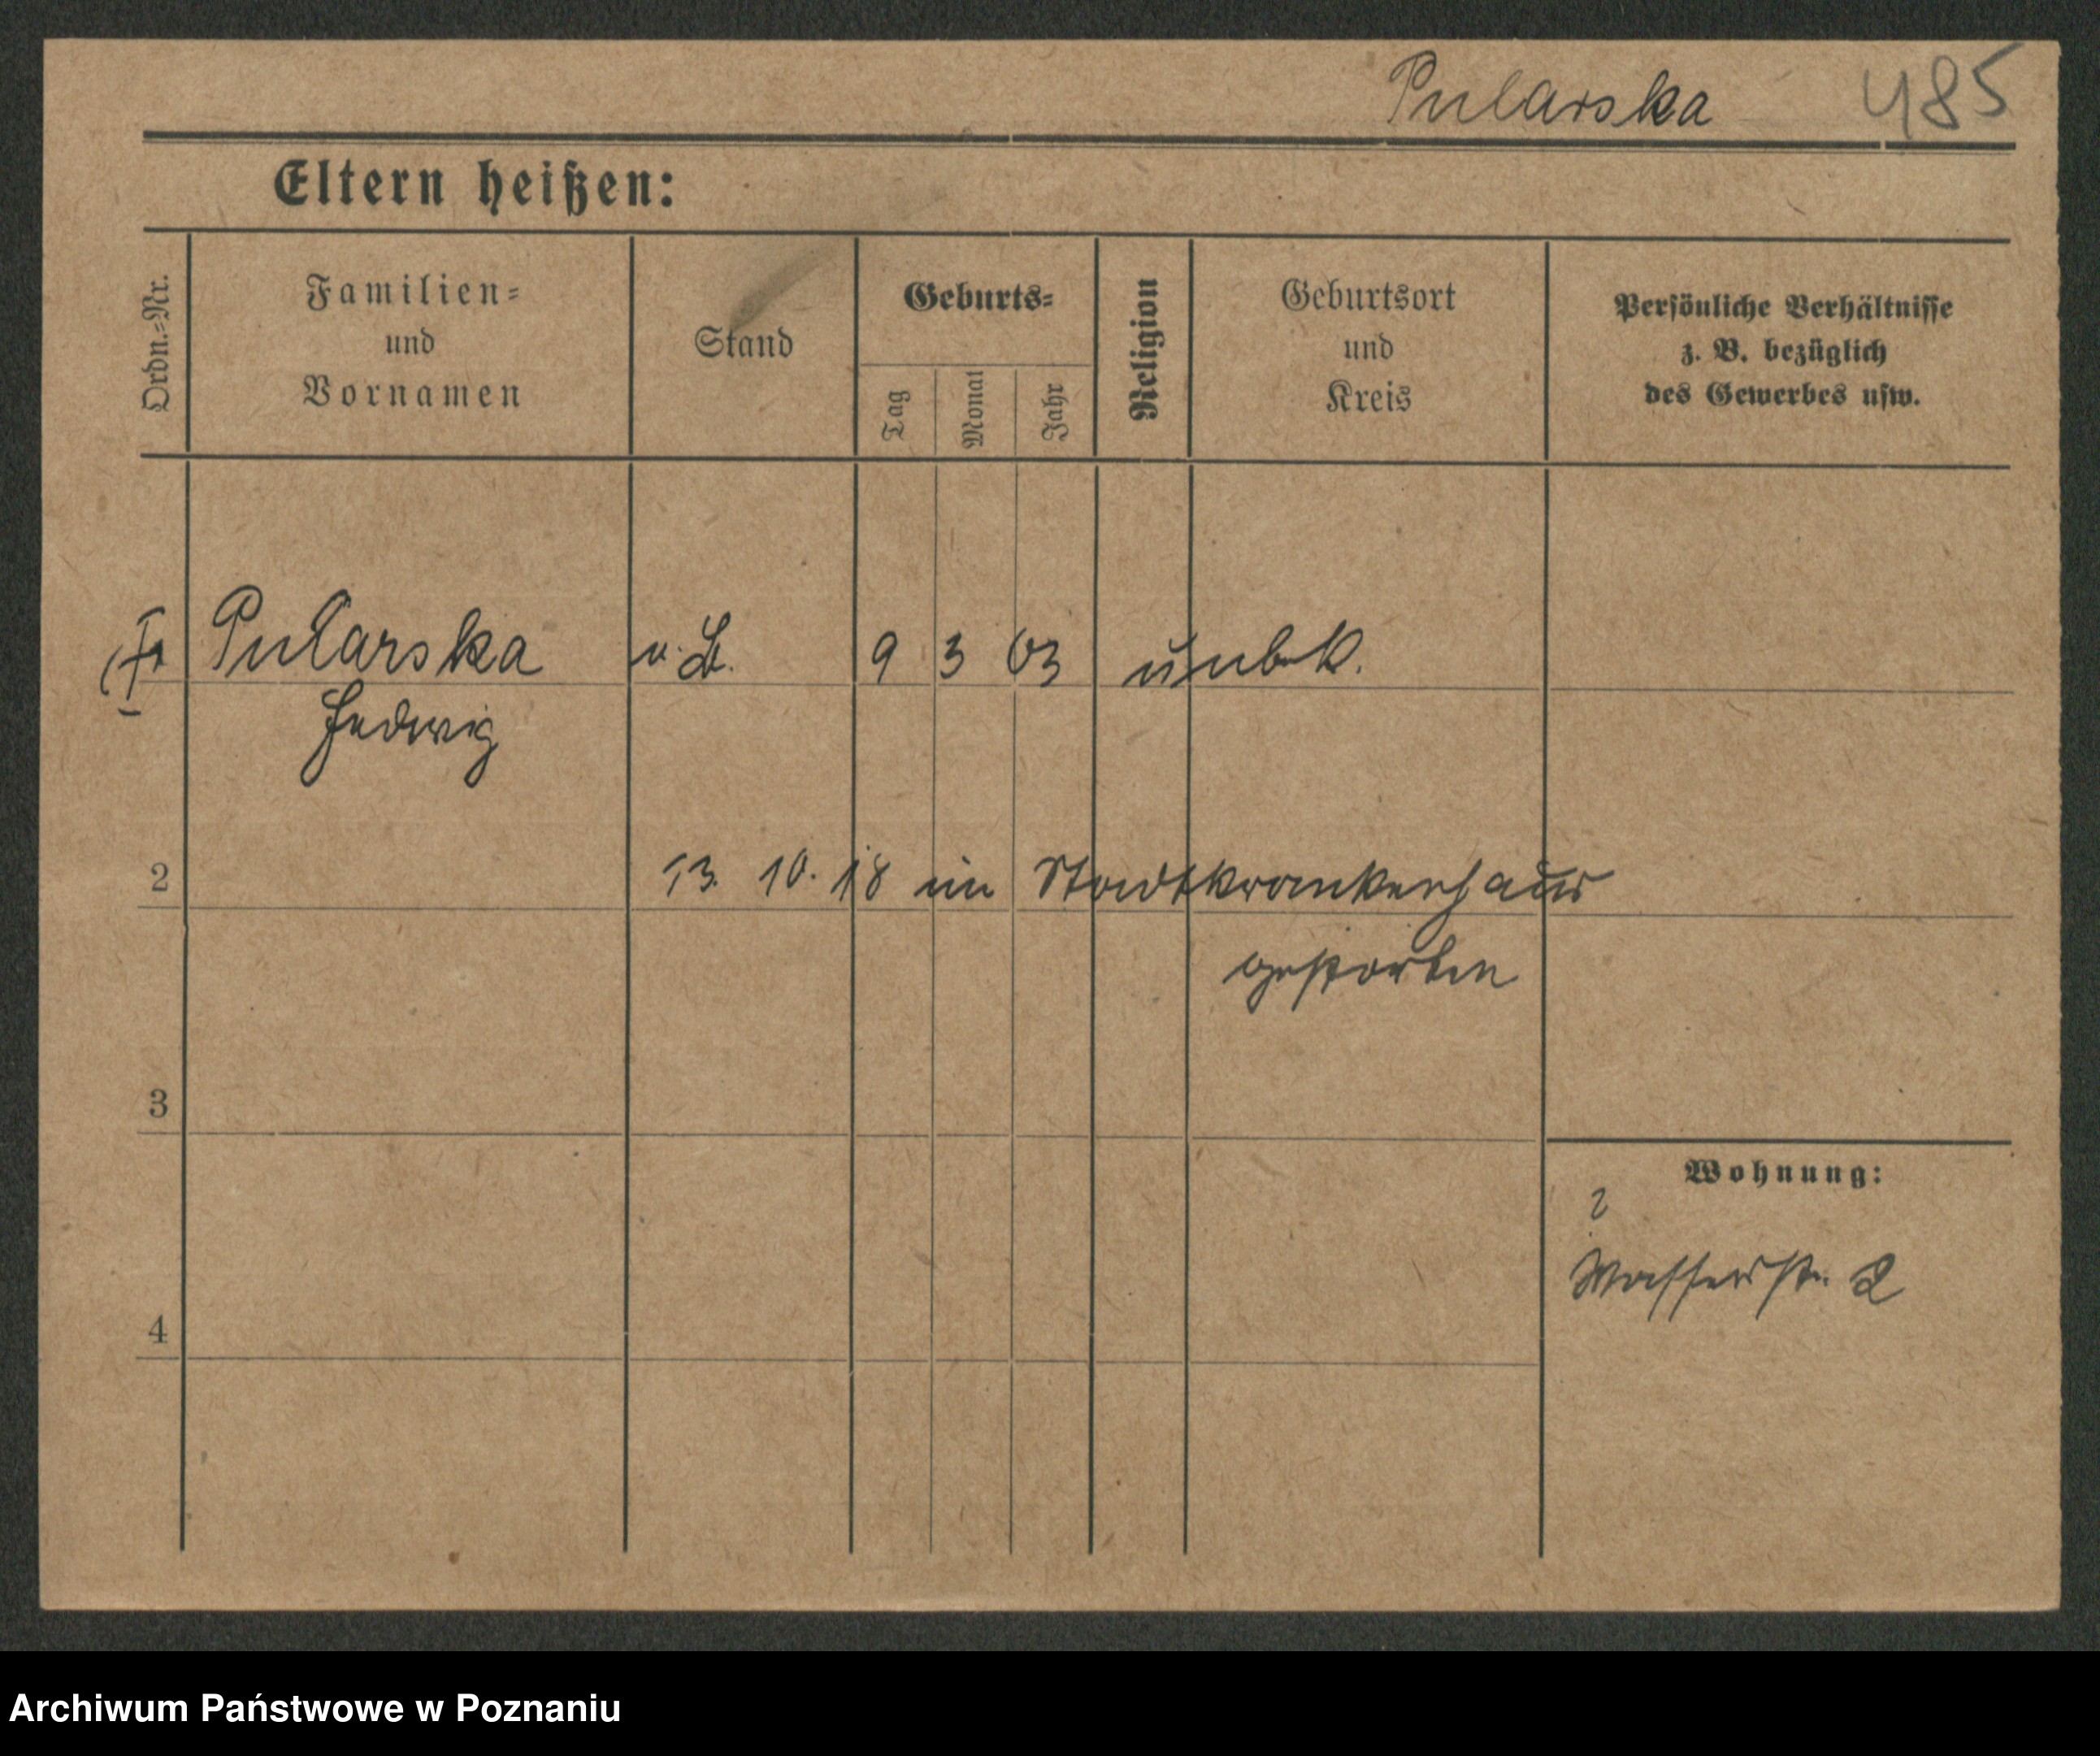 Pularska 485
Eltern heißen:
Ordn.=Nr.
Familien=
und
Vornamen
Stand
Geburts=
Tag
Monat
Jahr
Religion
Geburtsort
und
Kreis
Persönliche Verhältnisse
z. B. bezüglich
des Gewerbes usw.
Pularska 9 3 03 unbek.
Hedwig
2 13. 10. 18 im Stadtkrankenhaus
gestorben
3
Wohnung:
?
Wasserstr. 2
4
Archiwum Państwowe w Poznaniu